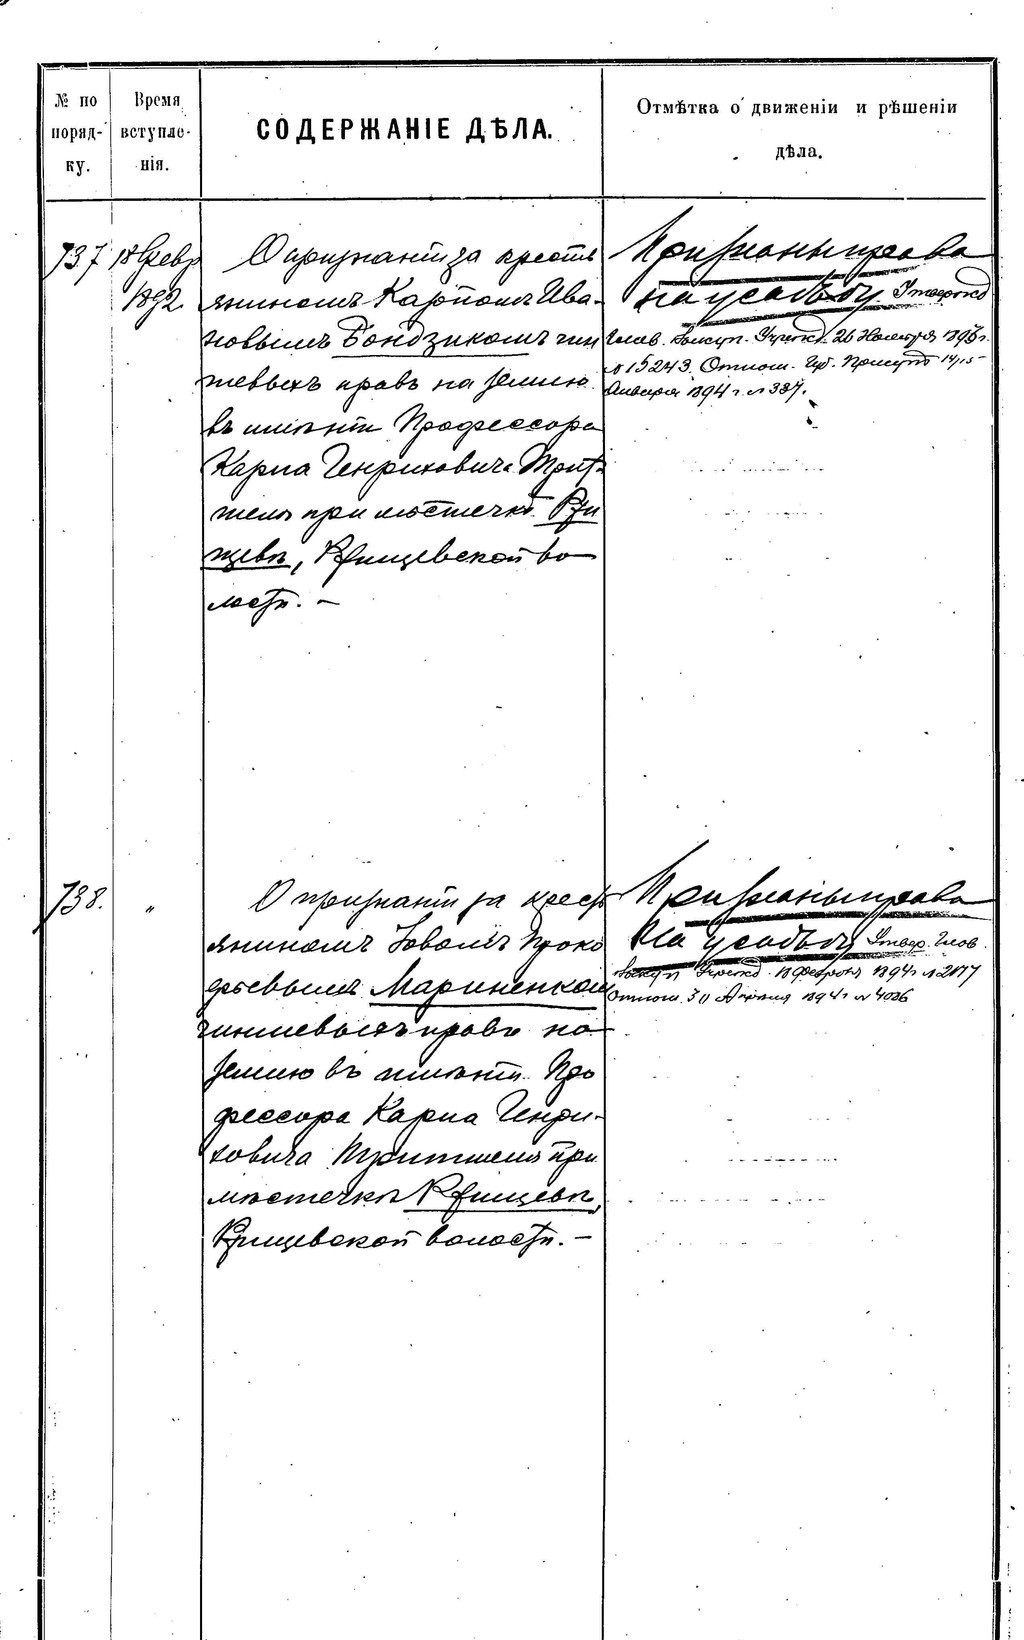 № по порядку.
Время вступленія.
СОДЕРЖАНІЕ ДѢЛА.
Отмѣтка о движеніи и рѣшеніи
дѣла.
737
18 Февр
1892
О признаніи за кресть
яниномъ Карпомъ Ива-
новымъ Бондзикомъ чин
шевыхъ правъ на землю
въ имѣніи Профессора
Карла Генриховича
при мѣстечкѣ Ржи
щевѣ, Ржищевской во
лости. —
Признаны права
на усадьбу Утвержд
Глав. Выкуп. Учрежд. 20 Ноября 1893 г.
№ 15243. Отнош. Губ. Присут 14/15
Января 1894 г. № 387.
738.
"
О признаніи за кресть
яниномъ Іовомъ Проко
фьевымъ Мариненкомъ
чиншевыхъ правъ на
землю въ имѣніи Про
фессора Карла Генри-
ховича при
мѣстечкѣ Ржищевѣ,
Ржищевской волости. —
Признаны права
На усадьбу Утвер. Глав.
Выкуп Учрежд. 18 Февраля 1894 г № 2177
Отнош. 30 Апрѣля 1894 г № 4086